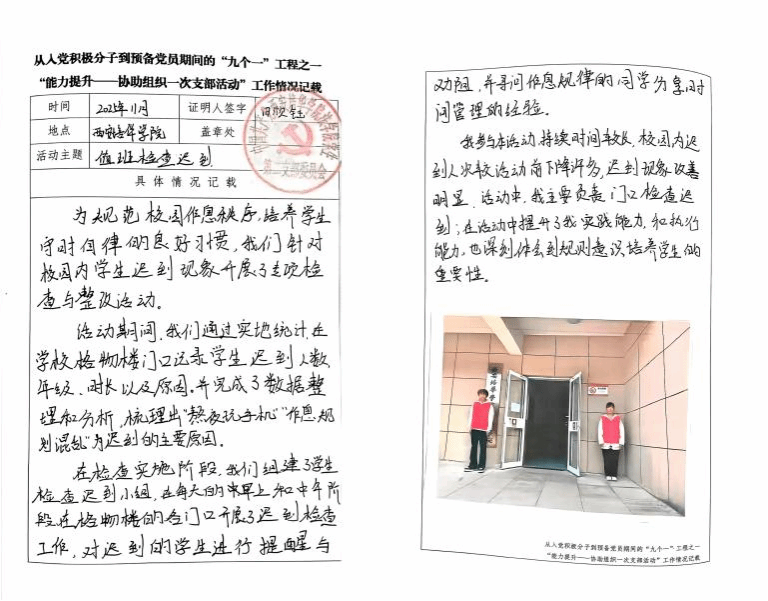 从入党积极分子到预备党员期间的“九个一”工程之一
“能力提升——协助组织一次支部活动”工作情况记载
时间 2025年11月 证明人签字
地点 西安培华学院 盖章处
活动主题 值班检查迟到
第二支部委员会
具体情况记载
为规范校园作息秩序，培养学生
守时自律的良好习惯，我们针对
校园内学生迟到现象开展了专项检
查与整改活动。
活动期间，我们通过实地统计，在
学校格物楼门口记录学生迟到人数
年级、时长以及原因。并完成了数据整
理和分析，梳理出“熬夜玩手机”“作息规
划混乱”为迟到的主要原因。
在检查实施阶段，我们组建了学生
检查迟到小组，在每天的早上和中午阶
段在格物楼的各门口开展了迟到检查
工作，对迟到的学生进行提醒与
劝阻，并寻问作息规律的同学分享时
间管理的经验。
我参与本活动，持续时间较长，校园内迟
到人次较活动前下降许多，迟到现象改善
明显，活动中，我主要负责门口检查迟
到；在活动中提升了我实践能力，和执行
能力，也深刻体会到规则意识培养学生的
重要性。
从入党积极分子到预备党员期间的“九个一”工程之一
“能力提升——协助组织一次支部活动”工作情况记载